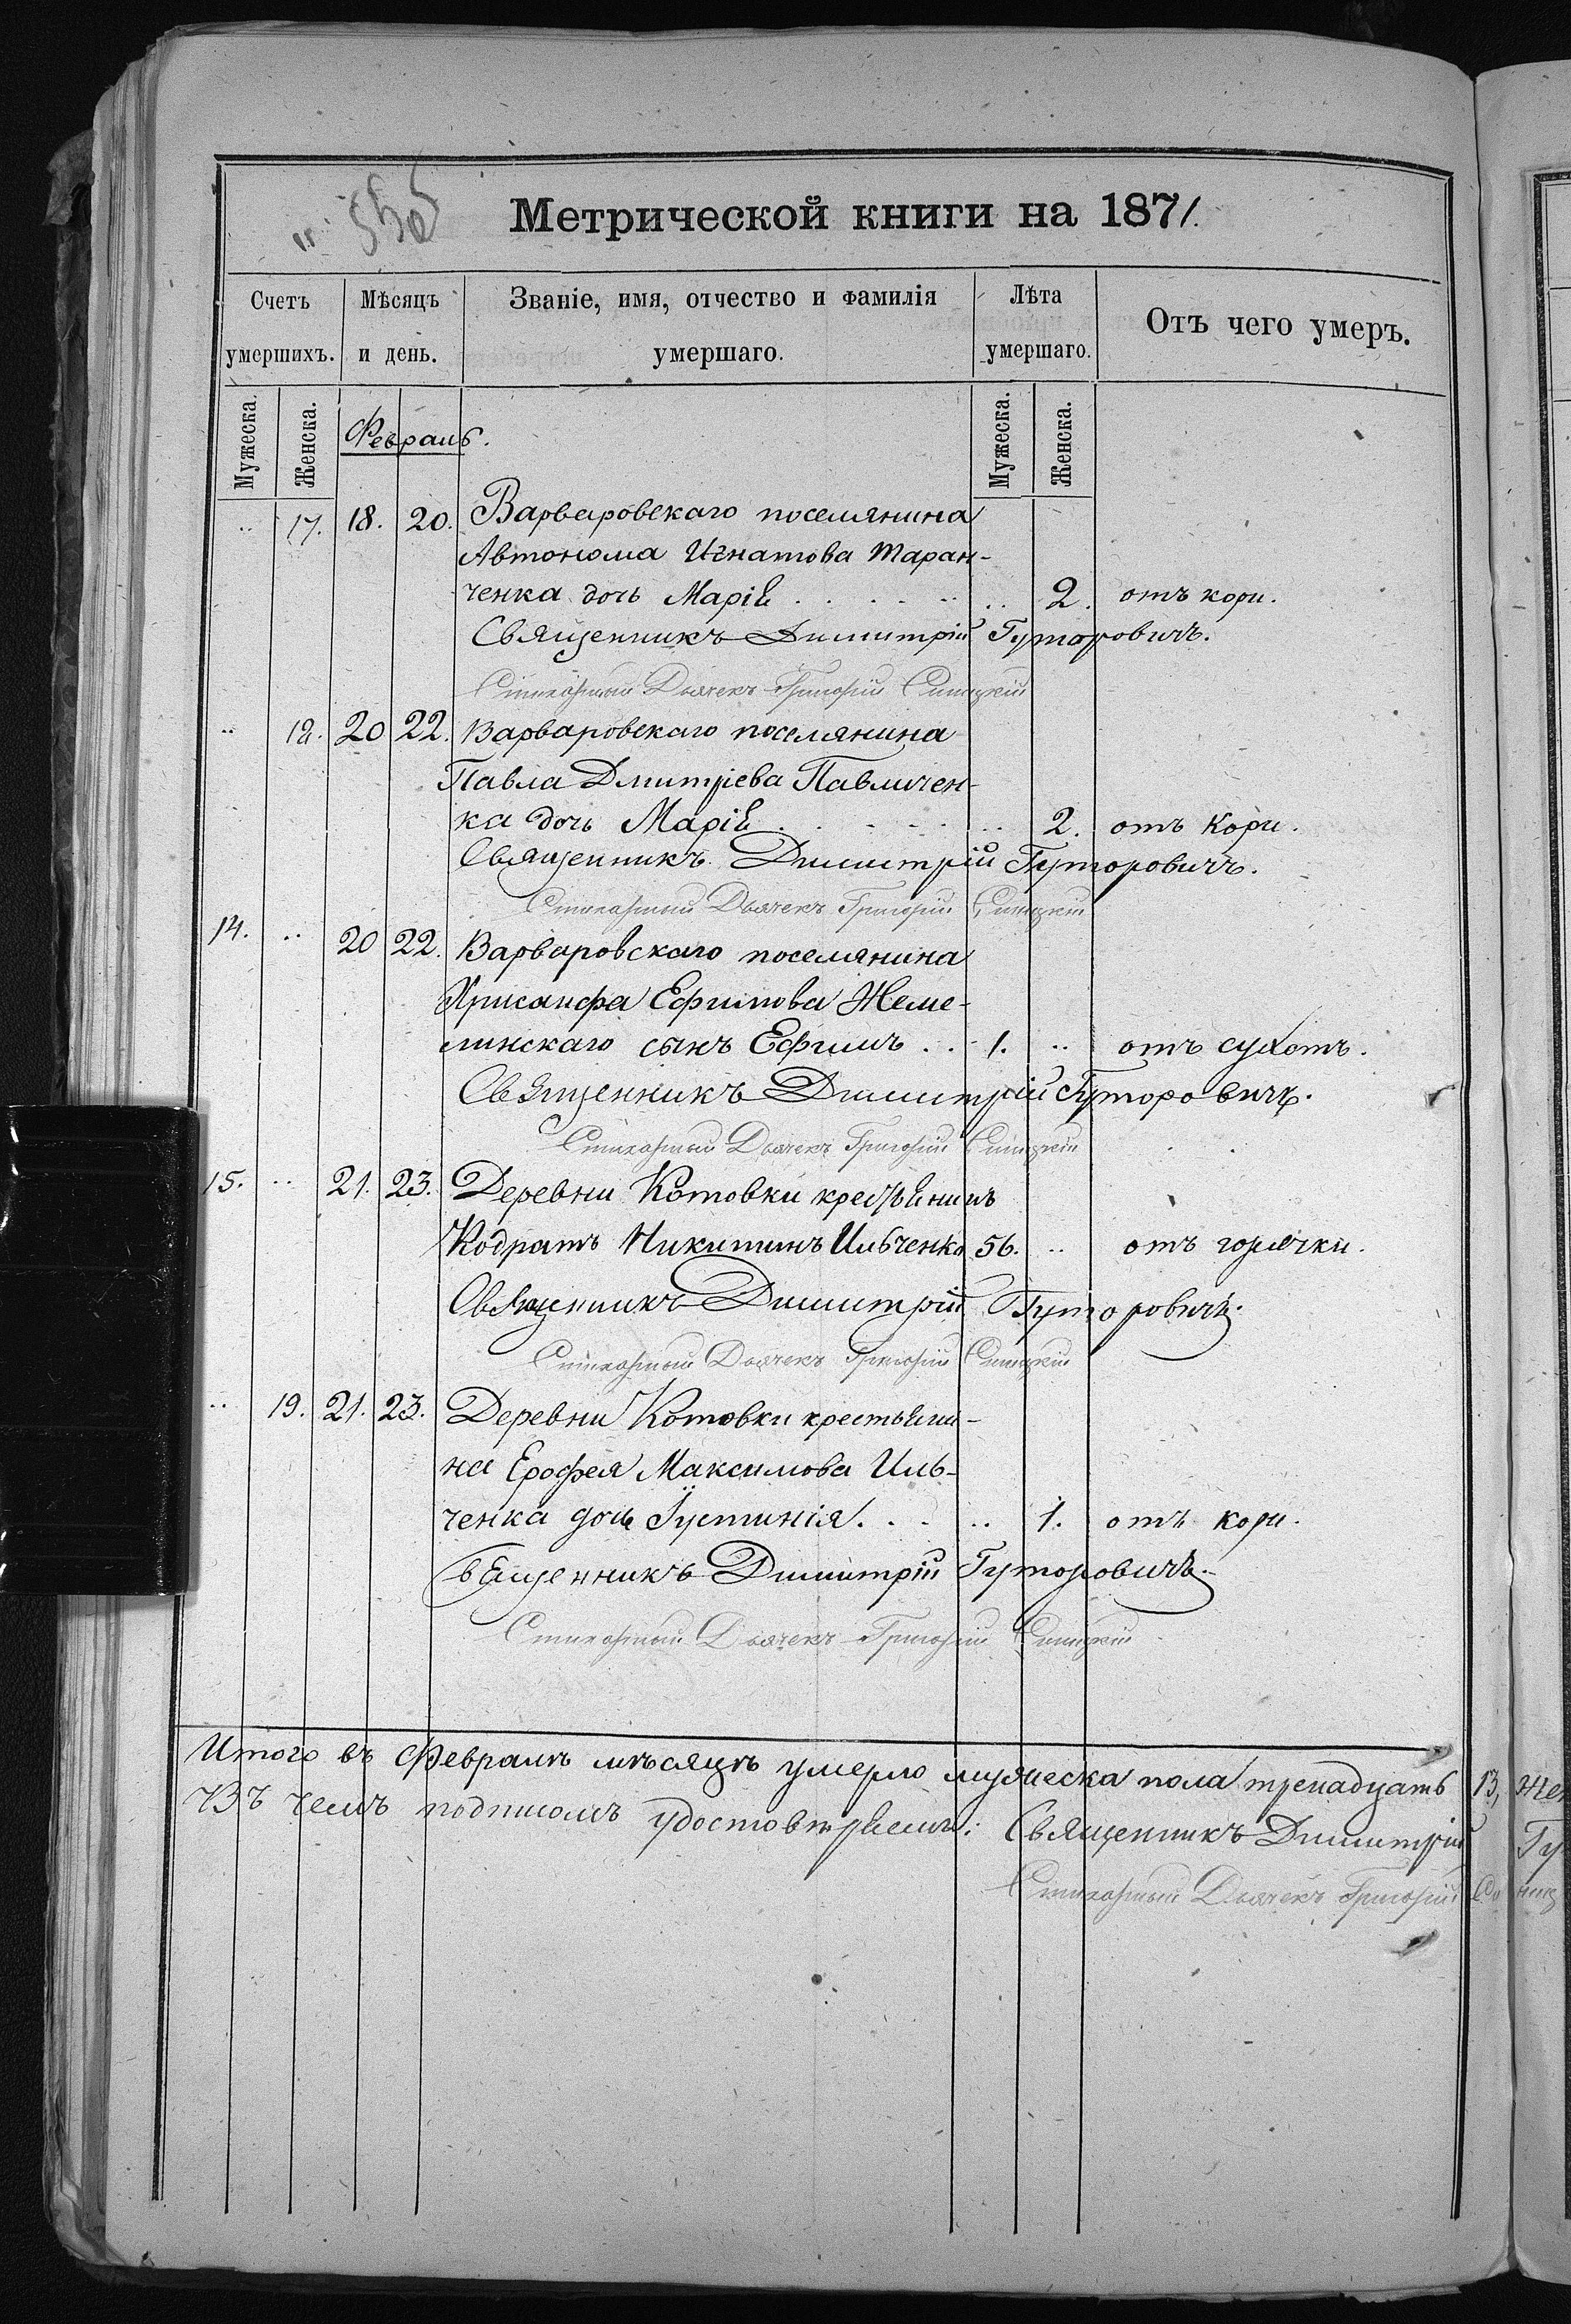 Метрической книги на 1871.
Счетъ умершихъ.
Мѣсяцъ и день.
Званіе, имя, отчество и фамилія умершаго.
Лѣта умершаго.
Отъ чего умеръ.
Мужеска. Женска. Мужеска. Женска.
Февраль.
.. 17. 18. 20. Варваровскаго поселянина
Автонома Игнатова Таран-
ченка дочь Марія .. 2. отъ кори.
Священникъ Димитрій Гуторовичъ.
Стихарный Дьячекъ Григорій Синицкій
.. 18. 20 22. Варваровскаго поселянина
Павла Дмитріева Павличен-
ка дочь Марія .. 2. отъ кори.
Священникъ Димитрій Гуторовичъ.
Стихарный Дьячекъ Григорій Синицкій
14. .. 20 22. Варваровскаго поселянина
Хрисанфа Ефимова Жеме-
линскаго сынъ Ефимъ .. 1. .. отъ сухотъ.
Священникъ Димитрій Гуторовичъ.
Стихарный Дьячекъ Григорій Синицкій
15. .. 21. 23. Деревни Котовки крестьянинъ
Кодратъ Никитинъ Ильченко 56. .. отъ горячки.
Священникъ Димитрій Гуторовичъ.
Стихарный Дьячекъ Григорій Синицкій
.. 19. 21. 23. Деревни Котовки крестьяни-
на Ерофея Максимова Иль-
ченка дочь Іустинія. .. 1. отъ кори.
Священникъ Димитрій Гуторовичъ.
Стихарный Дьячекъ Григорій Синицкій
Итого въ Февралѣ мѣсяцѣ умерло мужеска пола тринадцать 13, жен
Въ чемъ подписомъ удостовѣряемъ: Священникъ Димитрій Гу
Стихарный Дьячекъ Григорій Синиц